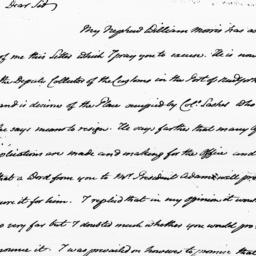 Dear Sir
My Nephew William Morris has as
of me this Letter which I pray you to excuse. He is now
the Deputy Collector of the Customs in the Port of NewYork
and is desirous of the Place occupied by Col. Lasher who
he says means to resign. He says farther that many
plications are made and making for the Office and
that a Word from you to Mr. President Adams will pro
cure it for him. I replied that in my opinion it went
so very far but I doubted much whether you would pro
nounce it. I was prevailed on however to promise that